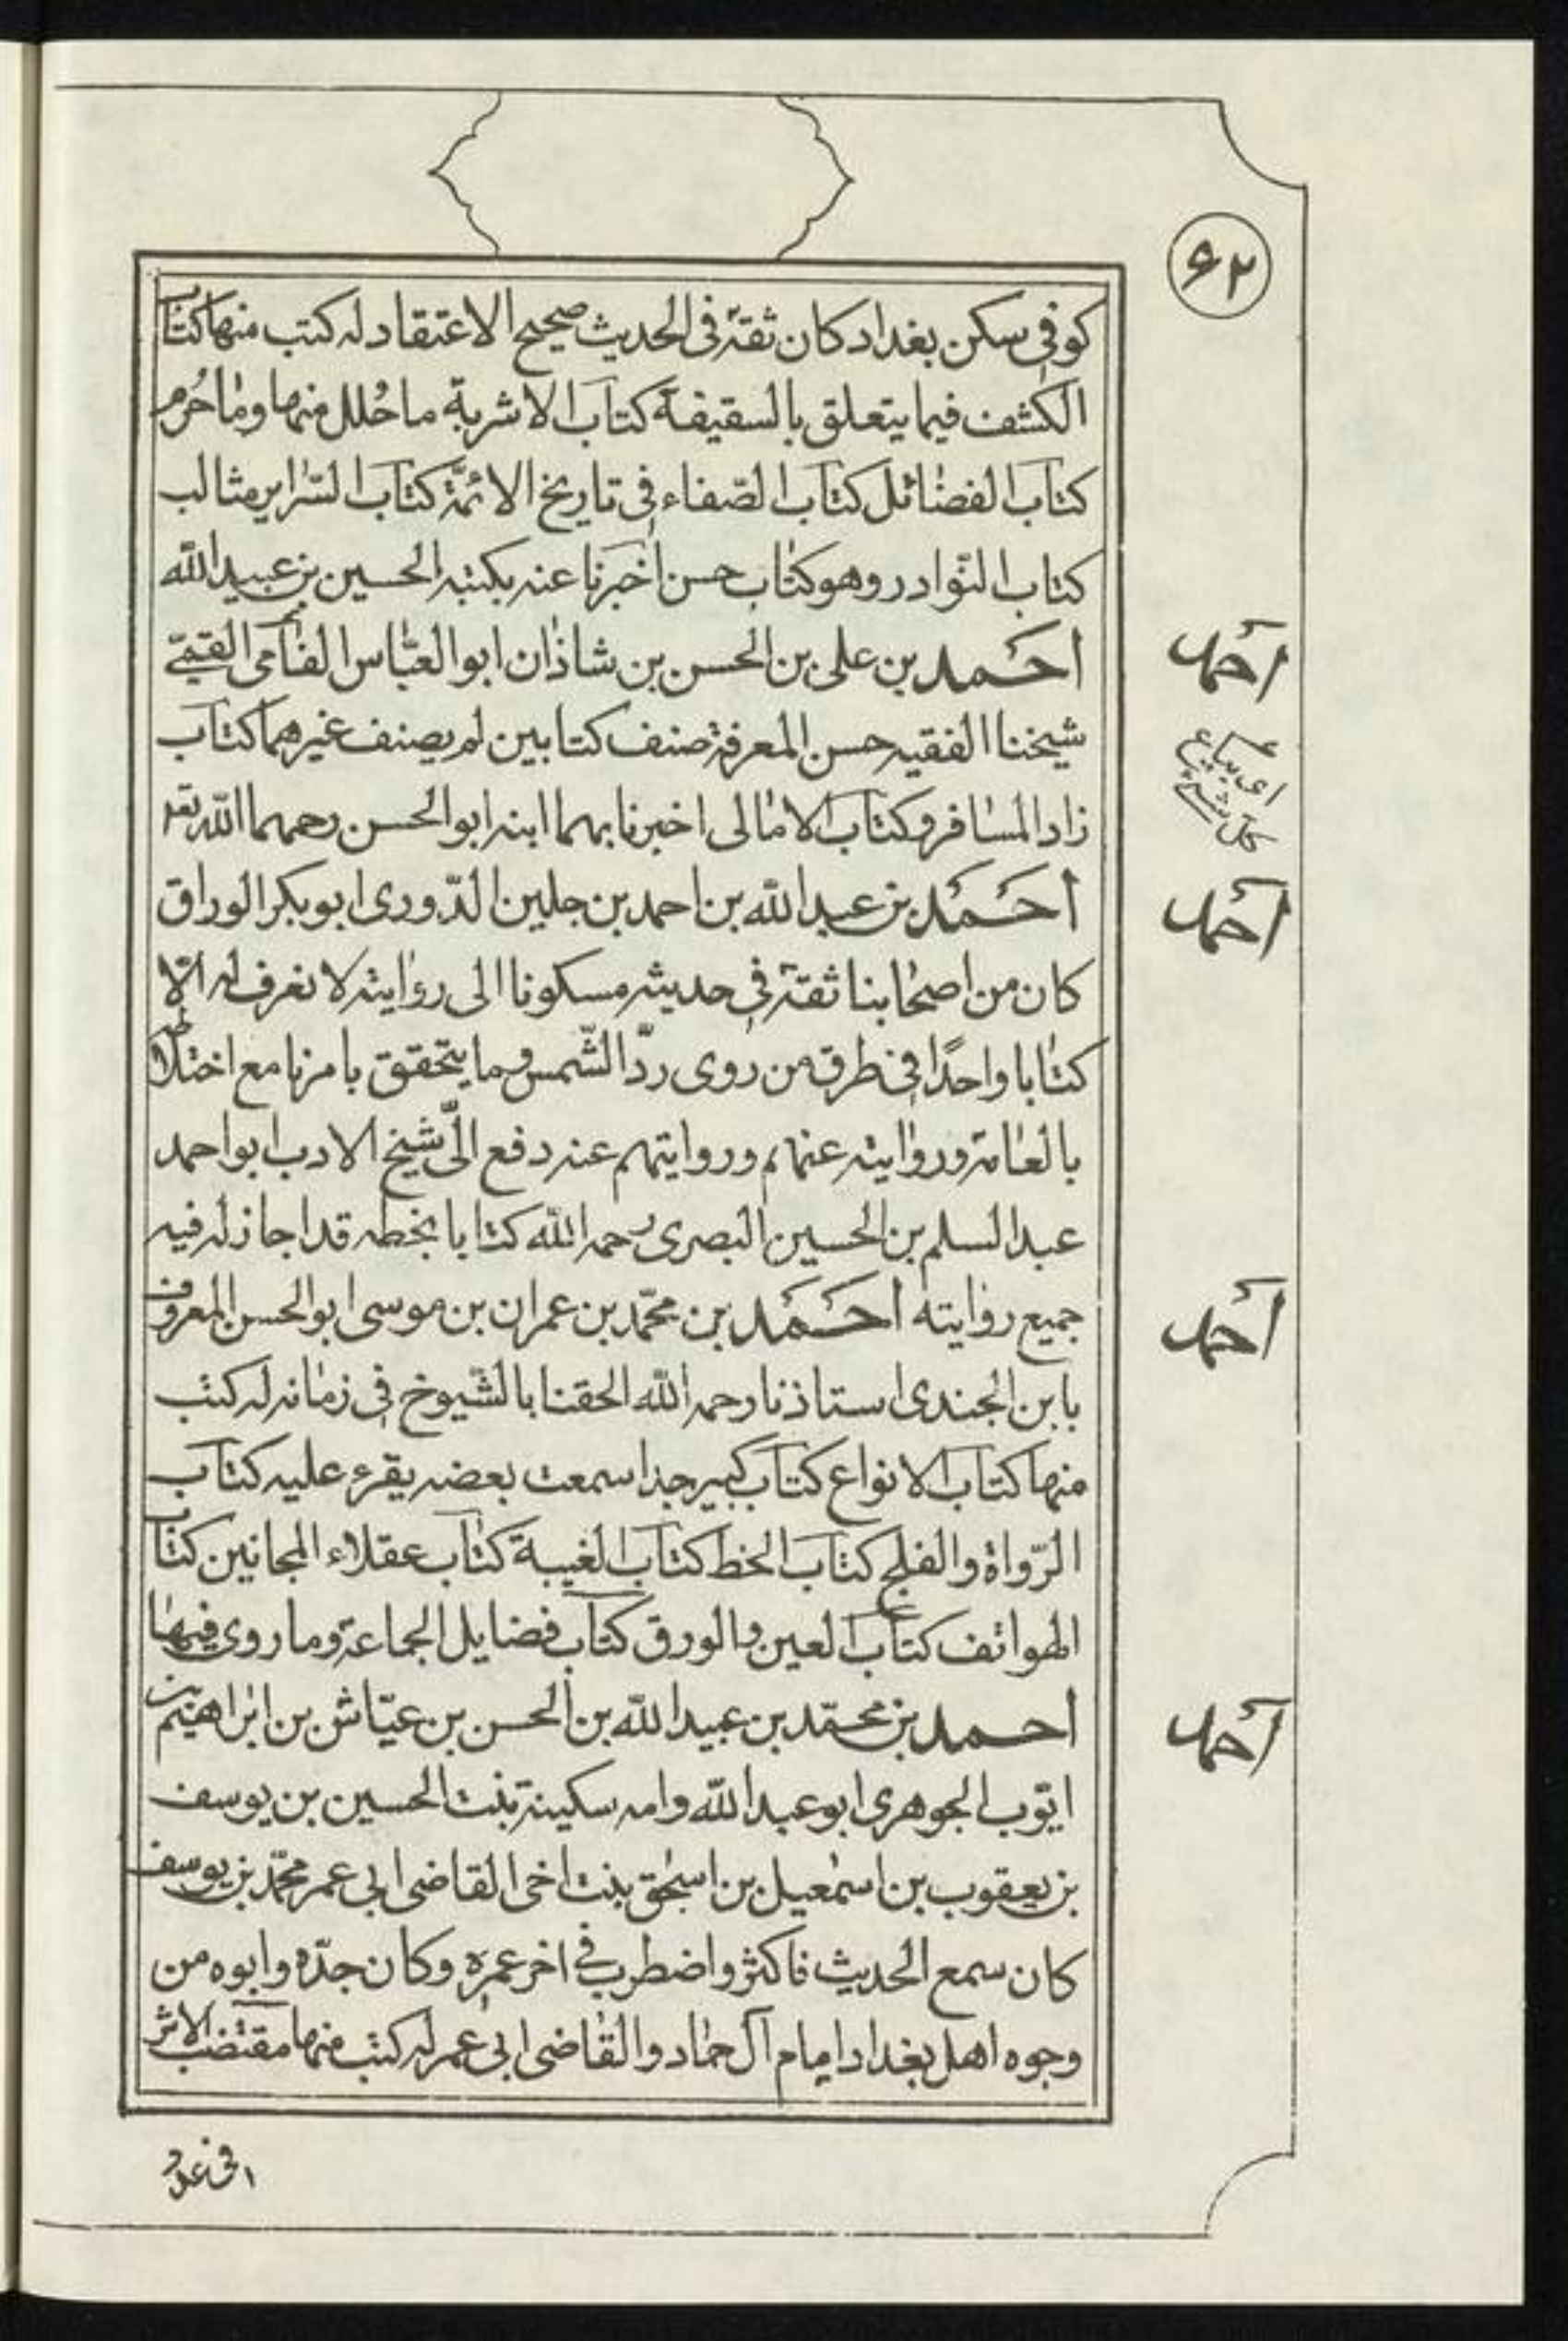 ٦٢
كوفى سكن بغداد كان ثقة فى الحديث صحيح الاعتقاد له كتب منها كتاب
الكشف فيما يتعلق بالسقيفة كتاب الاشربة ما حُلل منها وما حُرم
كتاب الفضائل كتاب الصّفاء فى تاريخ الائمّة كتاب السّراير مثالب
كتاب النّوادر وهو كتاب حسن اخبرنا عنه بكتبه الحسين بن عبيد الله
احمد
احَمد بن على بن الحسن بن شاذان ابو العبّاس الفامى القمّى
شيخنا الفقيه حسن المعرفة صنف كتابين لم يصنف غيرهما كتاب
زاد المسافر وكتاب الامالى اخبرنا بهما ابنه ابو الحسن رحمهما الله تعه
احمد
احَمَد بن عبد الله بن احمد بن جلين الدّورى ابو بكر الوراق
كان من اصحابنا ثقة فى حديثه مسكونا الى روايته لا نعرف له الّا
كتابا واحدًا فى طرق من روى ردّ الشّمس وما يتحقق بامرنا مع اختلاطه
بالعامة وروايته عنهم وروايتهم عنه دفع الىّ شيخ الادب ابو احمد
عبد السلم بن الحسين البصرى رحمه الله كتابا بخطه قد اجاز له فيه
احمد
جميع روايته احَمَد بن محمّد بن عمران بن موسى ابو الحسن المعروف
بابن الجندى استاذنا رحمه الله الحقنا بالشّيوخ فى زمانه له كتب
منها كتاب الانواع كتاب كبير جدا سمعت بعضه يقرء عليه كتاب
الرّواة والفلج كتاب الخط كتاب الغيبة كتاب عقلاء المجانين كتاب
الهواتف كتاب العين والورق كتاب فضايل الجماعة وما روى فيها
احمد
احمد بن محمّد بن عبيد الله بن الحسن بن عيّاش بن ابراهيم بن
ايّوب الجوهرى ابو عبد الله وامه سكينة بنت الحسين بن يوسف
بن يعقوب بن اسمعيل بن اسحق بنت اخى القاضى ابى عمر محمّد بن يوسف
كان سمع الحديث فاكثر واضطرب فى اخر عمره وكان جدّه وابوه من
وجوه اهل بغداد ايام آل حمّاد والقاضى ابى عمر له كتب منها مقتضب الاثر